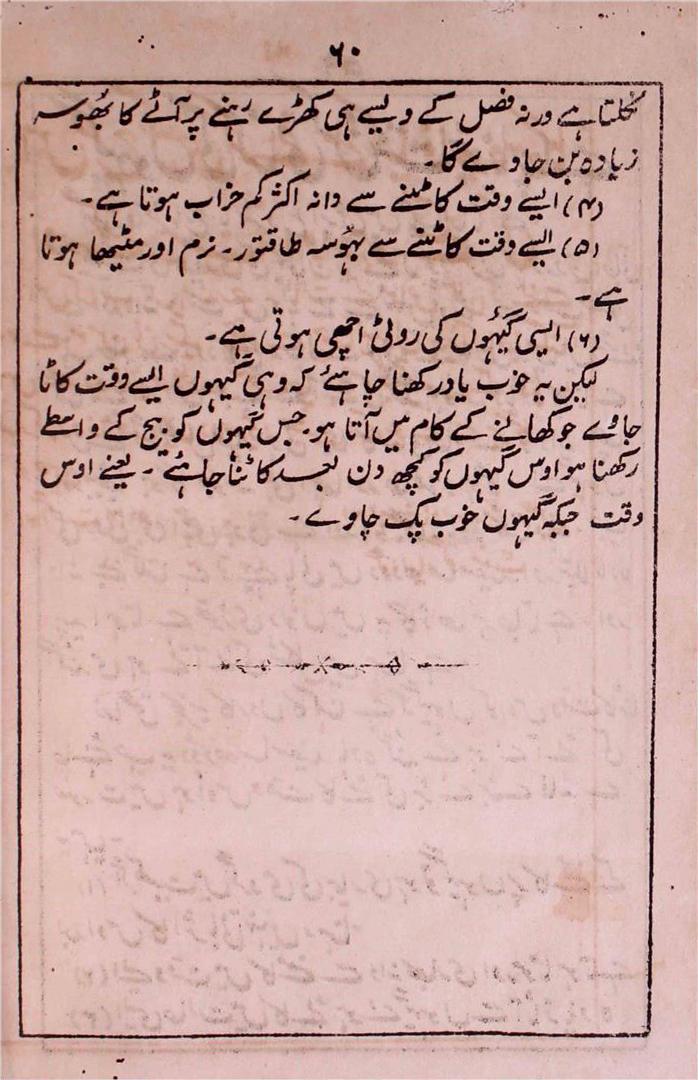 ۶۰
نکلتا ہے ورنہ فصل کے ویسے ہی کھڑے رہنے پر آٹے کا بھُوسہ
زیادہ بن جاوے گا۔
(۴) ایسے وقت کاٹنے سے دانہ اکثر کم خراب ہوتا ہے۔
(۵) ایسے وقت کاٹنے سے بہُوسہ طاقتور۔ نرم اور میٹھا ہوتا
ہے۔
(۶) ایسی گیہُوں کی روٹی اچھی ہوتی ہے۔
لیکن یہ خوب یاد رکھنا چاہئے کہ وہی گیہوں ایسے وقت کاٹا
جاوے جو کھانے کے کام میں آتا ہو۔ جس گیہوں کو بیج کے واسطے
رکھنا ہو اوس گیہوں کو کچھ دن بعد کاٹنا چاہئے۔ یعنے اوس
وقت جبکہ گیہوں خوب پک جاوے۔